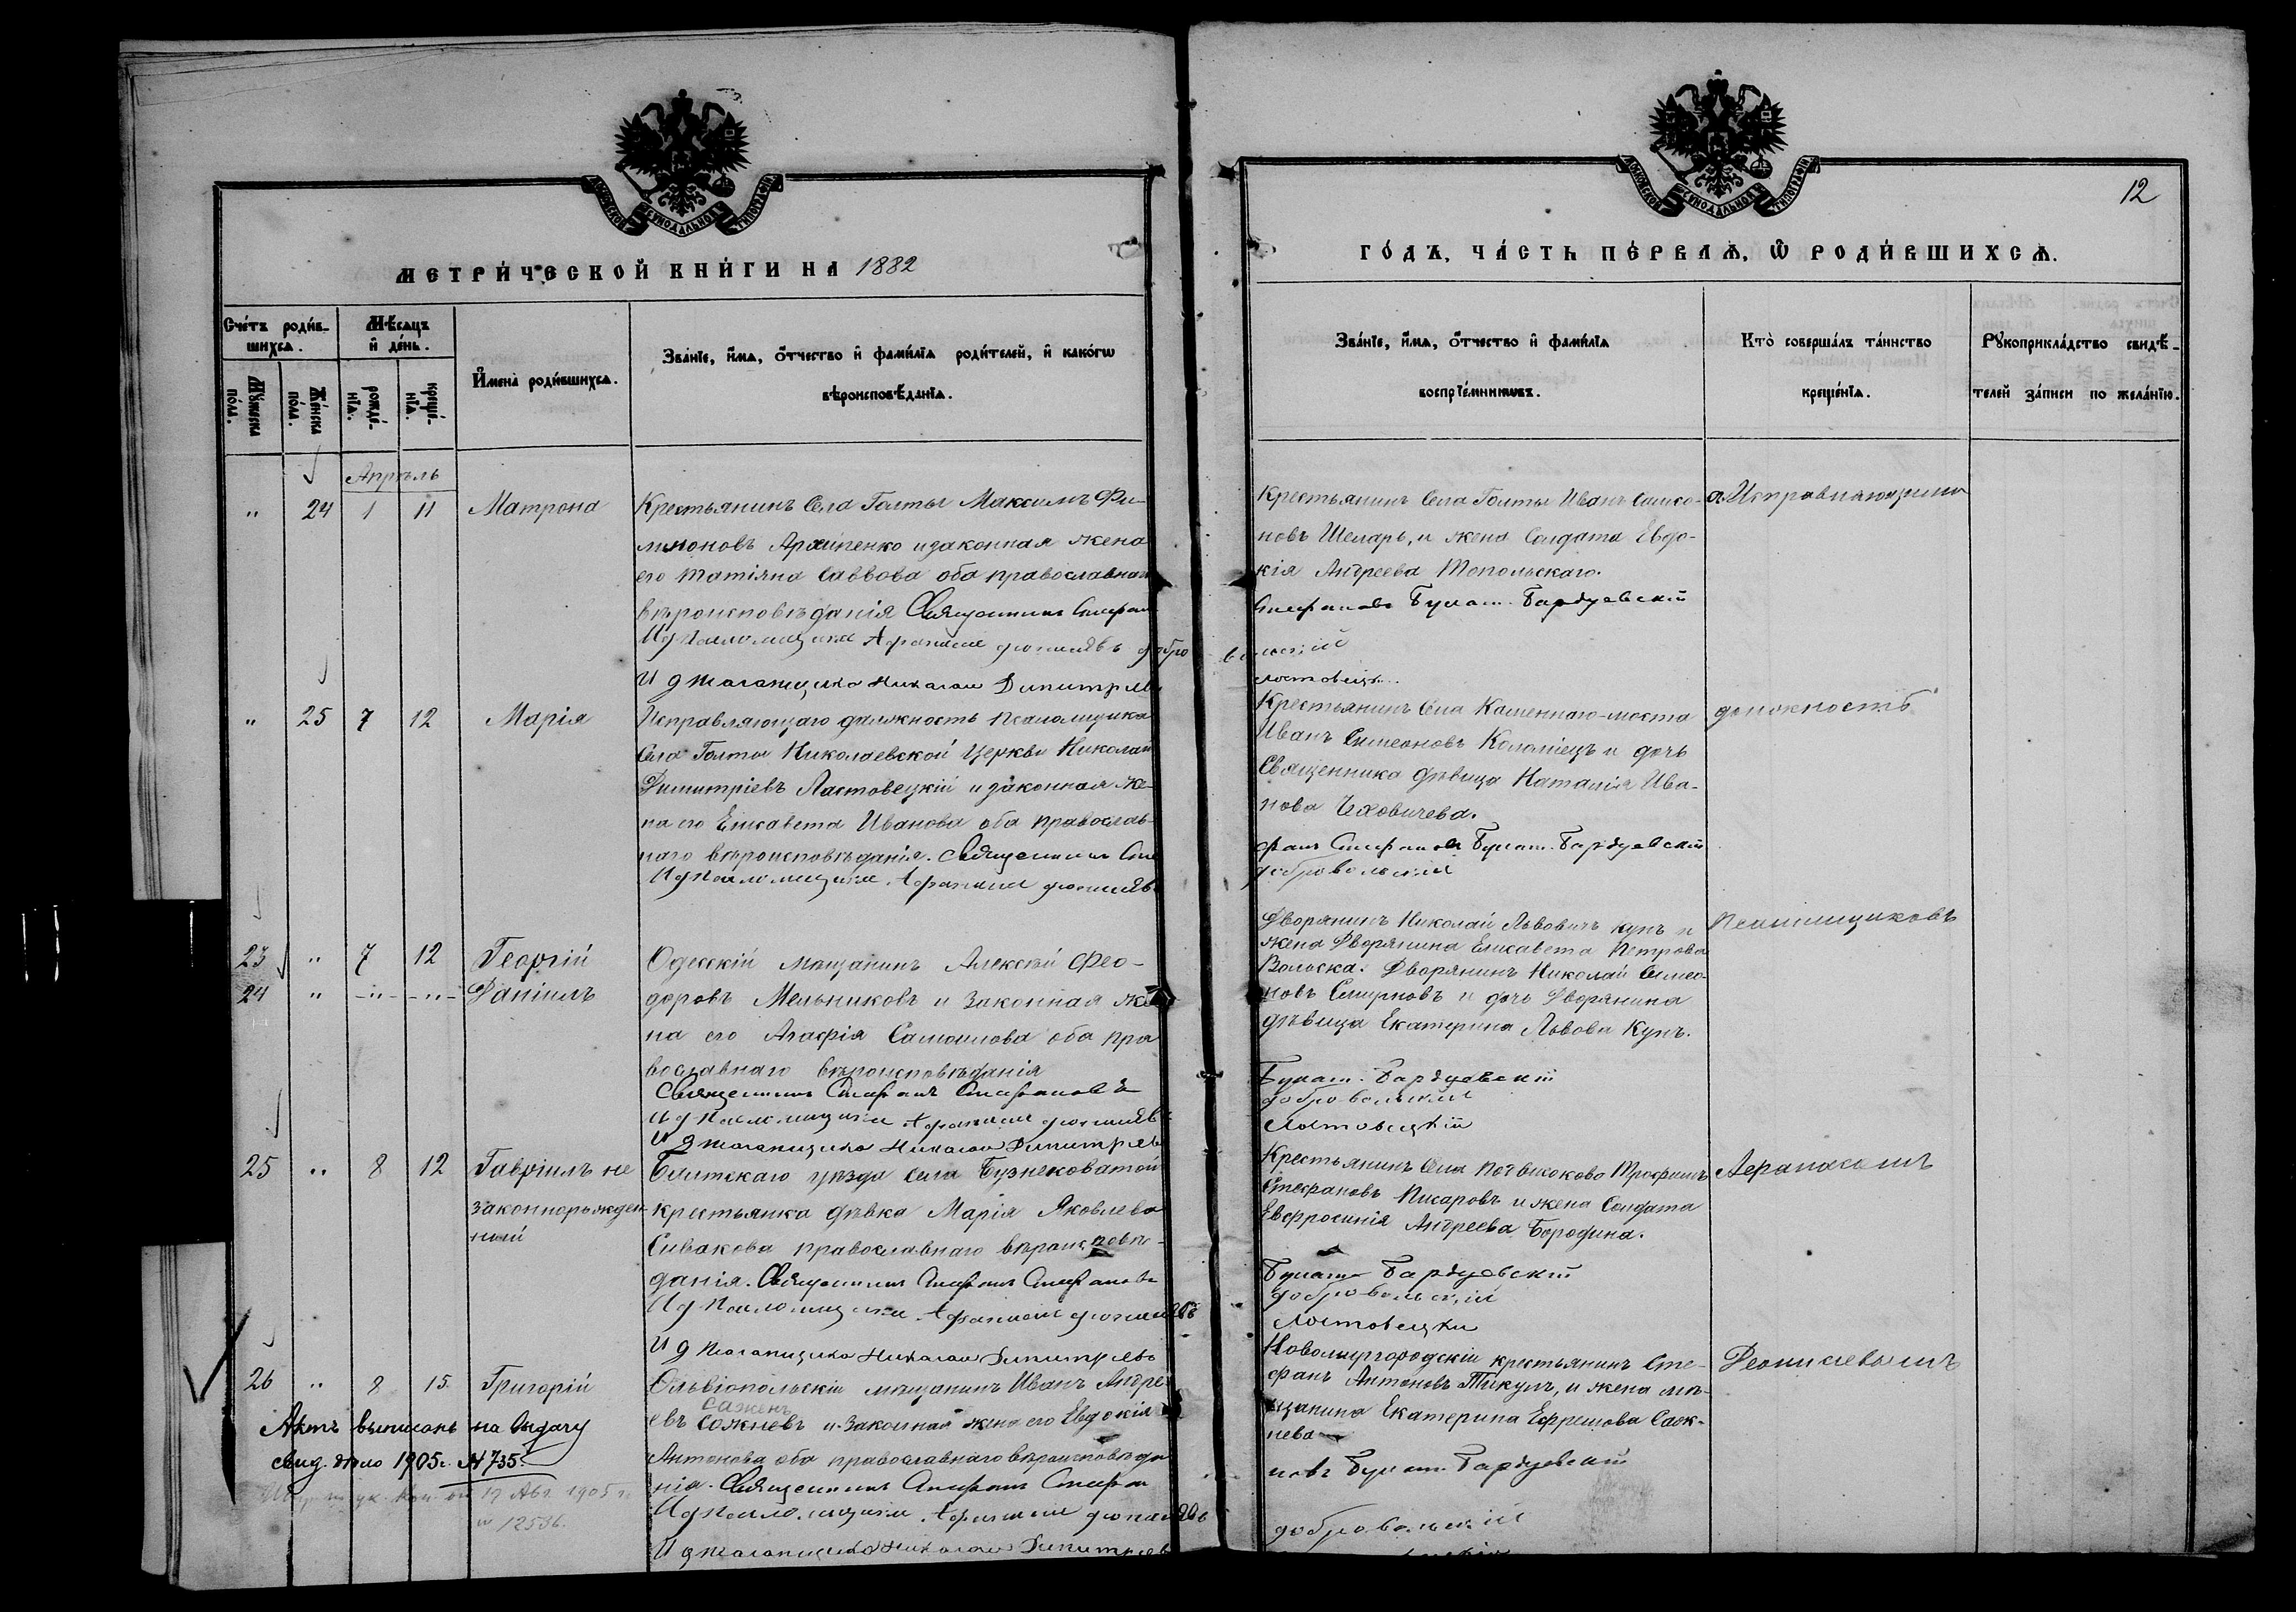 12
МЕТРИ́ЧЕСКОЙ КНИ́ГИ НА 1882
ГО́ДЪ, ЧА́СТЬ ПЕ́РВАѦ, Ѿ РОДИ́ВШИХСѦ.
Сче́тъ роди́в-
шихсѧ.
Мѣ́сѧцъ
и҆ де́нь.
Мꙋ́жеска
по́ла.
Же́нска
по́ла.
рожде́-
нїѧ.
креще́-
нїѧ.
И҆мена̀ роди́вшихсѧ.
Зва́нїе, и҆́мѧ, о҆́тчество и҆ фами́лїѧ роди́телей, и҆ како́гѡ
вѣроисповѣ́данїѧ.
Зва́нїе, и҆́мѧ, о҆́тчество и҆ фами́лїѧ
воспрїе́мникѡвъ.
Кто̀ соверша́лъ та́инство
креще́нїѧ.
Рꙋкоприкла́дство свидѣ́-
телей за́писи по жела́нїю.
Апрѣль
" 24 1 11 Матрона
Крестьянинъ Села Голты Максимъ Фи-
лимоновъ Архипенко и законная жена
его Татіяна Саввова оба православнаго
вѣроисповѣданія Священникъ Стефанъ
И д Псаломщика Афанасій Діонисіевъ Добро
И д Псаломщика Николай Димитріевъ
Крестьянинъ Села Голты Иванъ Самсо-
новъ Шеларь, и жена Солдата Евдо-
кія Андреева Топольскаго.
Стефановъ Булат. Бардуевскій
вольскій
Ластовецкій
Исправляющій
" 25 7 12 Марія
Исправляющаго должность псаломщика
Села Голты Николаевской Церкви Николай
Димитріевъ Ластовецкій и законная же-
на его Елисавета Иванова оба православ-
наго вѣроисповѣданія. Священникъ Сте
И д Псаломщика Афанасій Діонисіевъ
Крестьянинъ Села Каменнаго-моста
Иванъ Симеоновъ Коломіецъ и дочь
Священника дѣвица Наталія Ива-
нова Чеховичева.
фанъ Стефановъ Булат. Бардуевскій
Добровольскій
должность
23 " 7 12 Георгій
24 " -"- -"- Даніилъ
Одесскій мѣщанинъ Алексѣй Фео-
доровъ Мельниковъ и законная же
на его Агафія Самоилова оба пра
вославнаго вѣроисповѣданія
Священникъ Стефанъ Стефановъ
И д Псаломщика Афанасій Діонисіевъ
И д Псаломщика Николай Димитріевъ
Дворянинъ Николай Львовичъ Кунъ и
жена Дворянина Елисавета Петрова
Вольска. Дворянинъ Николай Симео-
новъ Смирновъ и дочь Дворянина
дѣвица Екатерина Львова Кунъ.
Булат. Бардуевскій
Добровольскій
Ластовецкій
Псаломщиковъ
25 " 8 12 Гавріилъ не
законнорожден-
ный
Балтскаго уѣзда села Бузнековатой
крестьянка дѣвка Марія Яковлева
Сивакова православнаго вѣроисповѣ-
данія. Священникъ Стефанъ Стефановъ
И д Псаломщика Афанасій Діонисіевъ
И д Псаломщика Николай Димитріевъ
Крестьянинъ Села Трофимъ
Стефановъ Писаровъ и жена Солдата
Евфросинія Андреева Бородина.
Булат Бардуевскій
Добровольскій
Ластовецкій
Афанасіемъ
26 " 8 15 Григорій
Ольвіопольскій мѣщанинъ Иванъ Андре-
евъ Сажневъ и законная жена его Евдокія
Саженъ
Антонова оба православнаго вѣроисповѣда
нія. Священникъ Стефанъ Стефа
И д Псаломщика Афанасій Діонисіевъ
И д Псаломщика Николай Димитріев
Новомиргородскій крестьянинъ Сте-
фанъ Антоновъ Тикулъ, и жена мѣ-
щанина Екатерина Ефремова Саж-
нева
новъ Булат Бардуевскій
Добровольскій
Діонисіевымъ
Актъ выписанъ на выдачу
свид. дѣло 1905 г. № 735.
17 Авг. 1905 г.
№ 12536.